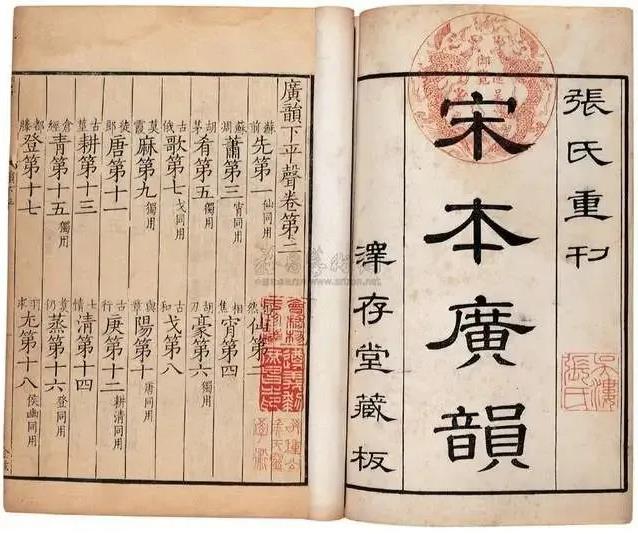 張氏重刊
宋本廣韻
澤存堂藏板
張氏
廣韻下平聲卷第二
蘇前先第一仙同用 然仙第二
蘇凋蕭第三宵同用 相焦宵第四
胡茅肴第五獨用 胡刀豪第六獨用
古俄歌第七戈同用 古和戈第八
莫霞麻第九獨用 與章陽第十唐同用
徒郎唐第十一 古行庚第十二耕清同用
古莖耕第十三 七情清第十四
倉經青第十五獨用 仍蒸第十六登同用
都滕登第十七 羽求尤第十八侯幽同用